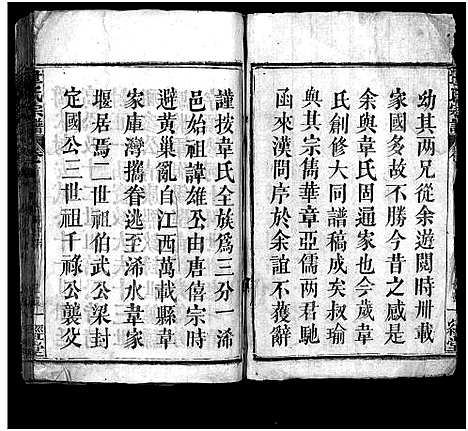 幼其兩兄從余遊閱時卅載
家國多故不勝今昔之感是
余與韋氏固通家也今歲韋
氏創修大同譜稿成矣叔瑜
與其宗儁華章亞儒兩君馳
函來漢問序於余誼不獲辭
謹按韋氏全族爲三分一浠
邑始祖諱雄公由唐僖宗時
避黃巢亂自江西萬載縣韋
家庫灣攜眷逃至浠水韋家
堰居焉二世祖伯武公梁封
定國公三世祖千祿公襲父
一經堂
一經堂